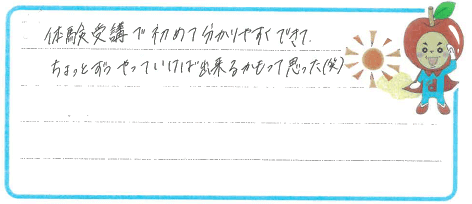 体験受講で初めて分かりやすくできて、
ちょっとずつやっていけば出来るかもって思った(笑)